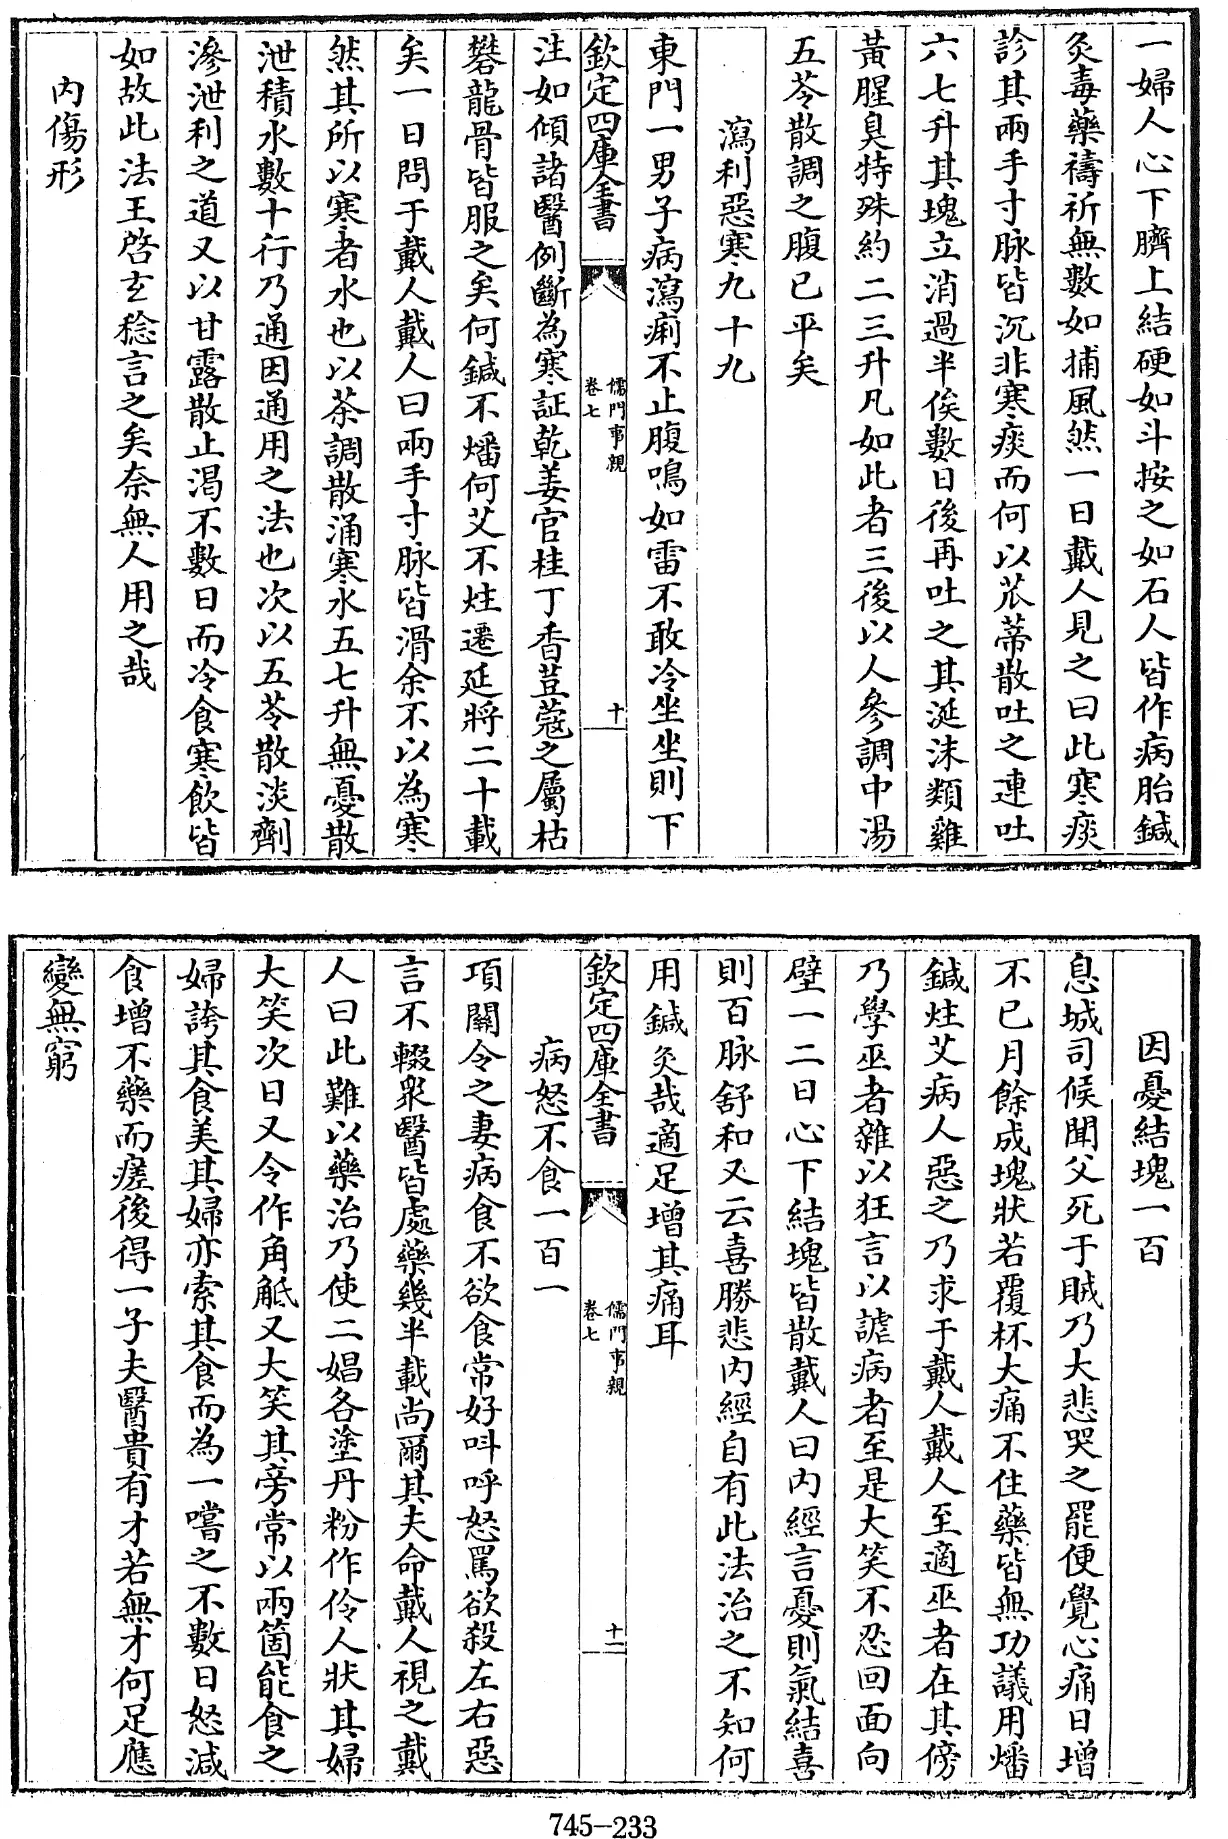 一婦人心下臍上結硬如斗按之如石人皆作病胎鍼
灸毒藥禱祈無數如捕風然一日戴人見之曰此寒痰
診其兩手寸脉皆沉非寒痰而何以苽蒂散吐之連吐
六七升其塊立消過半俟數日後再吐之其涎沫類雞
黃腥臭特殊約二三升凡如此者三後以人參調中湯
五苓散調之腹已平矣
瀉利惡寒九十九
東門一男子病瀉痢不止腹鳴如雷不敢冷坐坐則下
欽定四庫全書
儒門事親
卷七
十
注如傾諸醫例斷為寒証乾姜官桂丁香荳蔻之屬枯
礬龍骨皆服之矣何鍼不燔何艾不炷遷延將二十載
矣一日問于戴人戴人曰兩手寸脉皆滑余不以為寒
然其所以寒者水也以茶調散涌寒水五七升無憂散
泄積水數十行乃通因通用之法也次以五苓散淡劑
滲泄利之道又以甘露散止渴不數日而冷食寒飲皆
如故此法王啓玄稔言之矣奈無人用之哉
內傷形
因憂結塊一百
息城司候聞父死于賊乃大悲哭之罷便覺心痛日增
不已月餘成塊狀若覆杯大痛不住藥皆無功議用燔
鍼炷艾病人惡之乃求于戴人戴人至適巫者在其傍
乃學巫者雜以狂言以謔病者至是大笑不忍回面向
壁一二日心下結塊皆散戴人曰內經言憂則氣結喜
則百脉舒和又云喜勝悲內經自有此法治之不知何
用鍼灸哉適足增其痛耳
欽定四庫全書
儒門事親
卷七
十一
病怒不食一百一
項關令之妻病食不欲食常好呌呼怒罵欲殺左右惡
言不輟衆醫皆處藥幾半載尚爾其夫命戴人視之戴
人曰此難以藥治乃使二娼各塗丹粉作伶人狀其婦
大笑次日又令作角觝又大笑其旁常以兩箇能食之
婦誇其食美其婦亦索其食而為一嚐之不數日怒減
食增不藥而瘥後得一子夫醫貴有才若無才何足應
變無窮
745-233